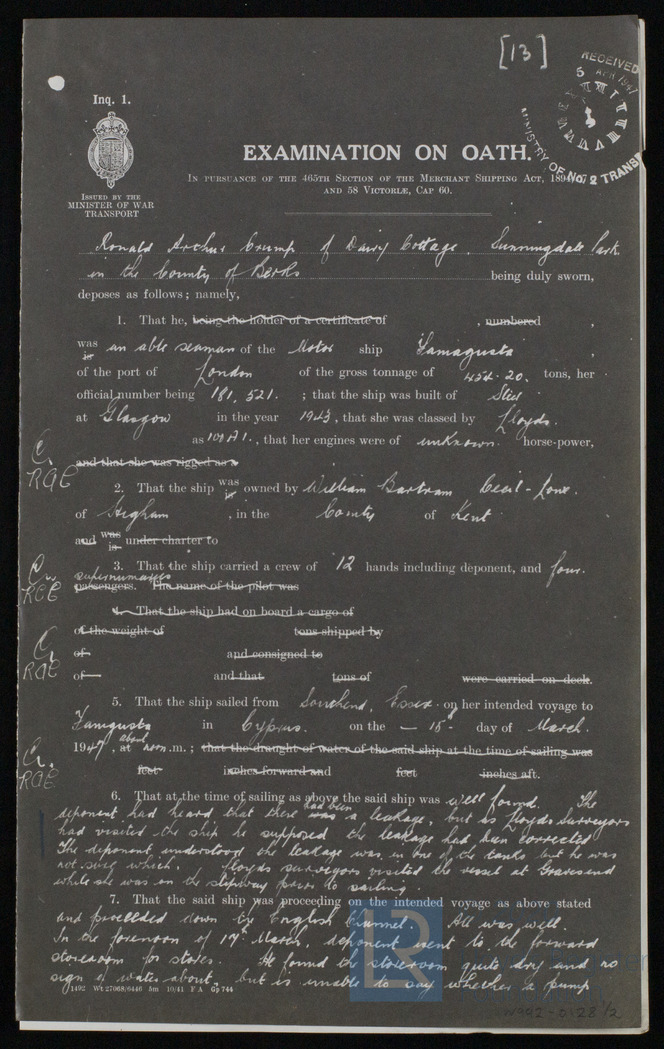 [13]
RECEIVED
5 APR 1947
MINISTRY OF TRANSPORT
No. 2
Inq. 1.
ISSUED BY THE
MINISTER OF WAR
TRANSPORT
EXAMINATION ON OATH.
IN PURSUANCE OF THE 465TH SECTION OF THE MERCHANT SHIPPING ACT, 1894
AND 58 VICTORIÆ, CAP 60.
Ronald Arthur Crump of Dairy Cottage, Sunningdale Park
in the County of Berks being duly sworn,
deposes as follows; namely,
1. That he, being the holder of a certificate of , numbered ,
was
is an able seaman of the Motor ship Famagusta ,
of the port of London of the gross tonnage of 454·20. tons, her
official number being 181,521. ; that the ship was built of Steel
at Glasgow in the year 1943, that she was classed by Lloyds.
as 100 A1., that her engines were of unknown. horse-power,
and that she was rigged as a
C.
RAC
2. That the ship was
is owned by William Bartram Cecil-
of Higham , in the County of Kent
and was
is under charter to
3. That the ship carried a crew of 12 hands including deponent, and four.
supernumaries
passengers. The name of the pilot was
C.
RAC
4. That the ship had on board a cargo of
of the weight of tons shipped by
of and consigned to
of and that tons of were carried on deck.
C.
RAC
5. That the ship sailed from Southend, Essex on her intended voyage to
Famagusta in Cyprus. on the — 15th day of March.
1947, at about noon.m.; that the draught of water of the said ship at the time of sailing was
feet inches forward and feet inches aft.
C.
RAC
6. That at the time of sailing as above the said ship was well found. The
deponent had heard that there was had been a leakage, but as Lloyds Surveyors
had visited the ship he supposed the leakage had been corrected
The deponent understood the leakage was in one of the tanks but he was
not sure which. Lloyds surveyors visited the vessel at Gravesend
while she was on the slipway prior to sailing.
7. That the said ship was proceeding on the intended voyage as above stated
and proceeded down the English Channel. All was well.
In the forenoon of 17th March, deponent went to the forward
storeroom for stores. He found the storeroom quite dry and no
sign of water about, but is unable to say whether a pump
1492 Wt 27068/6446 5m 10/41 F A Gp 744
LR
W902-0128 1/2